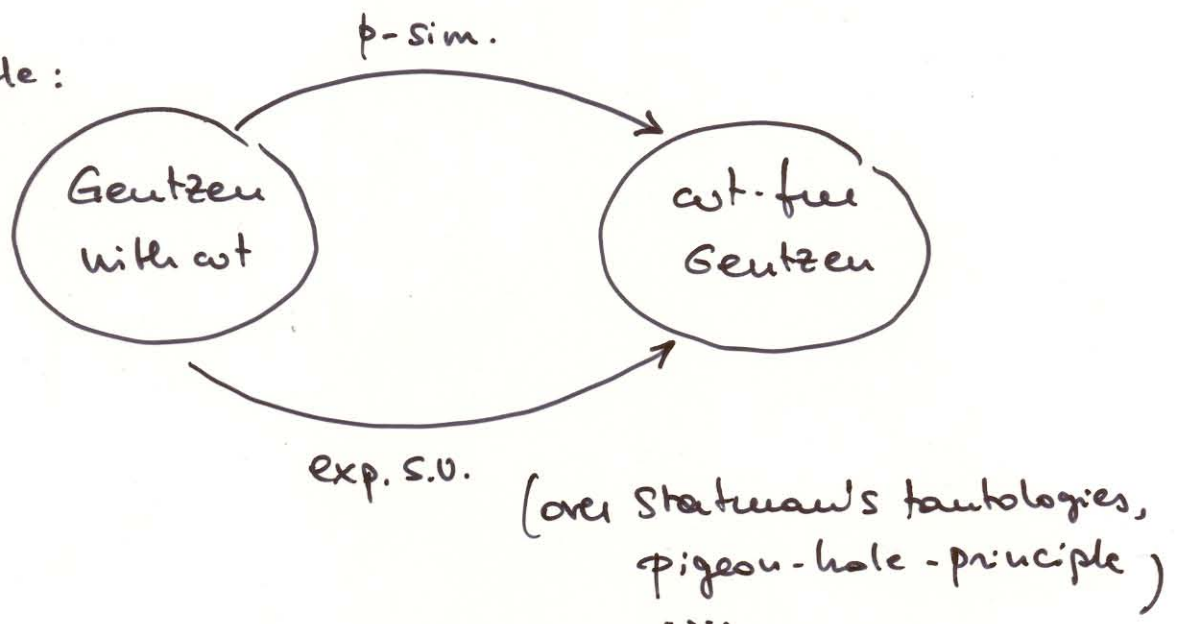 le:
p-sim.
Gentzen
with cut
cut-free
Gentzen
exp. s.u.
(over Statman's tautologies,
pigeon-hole-principle)
....